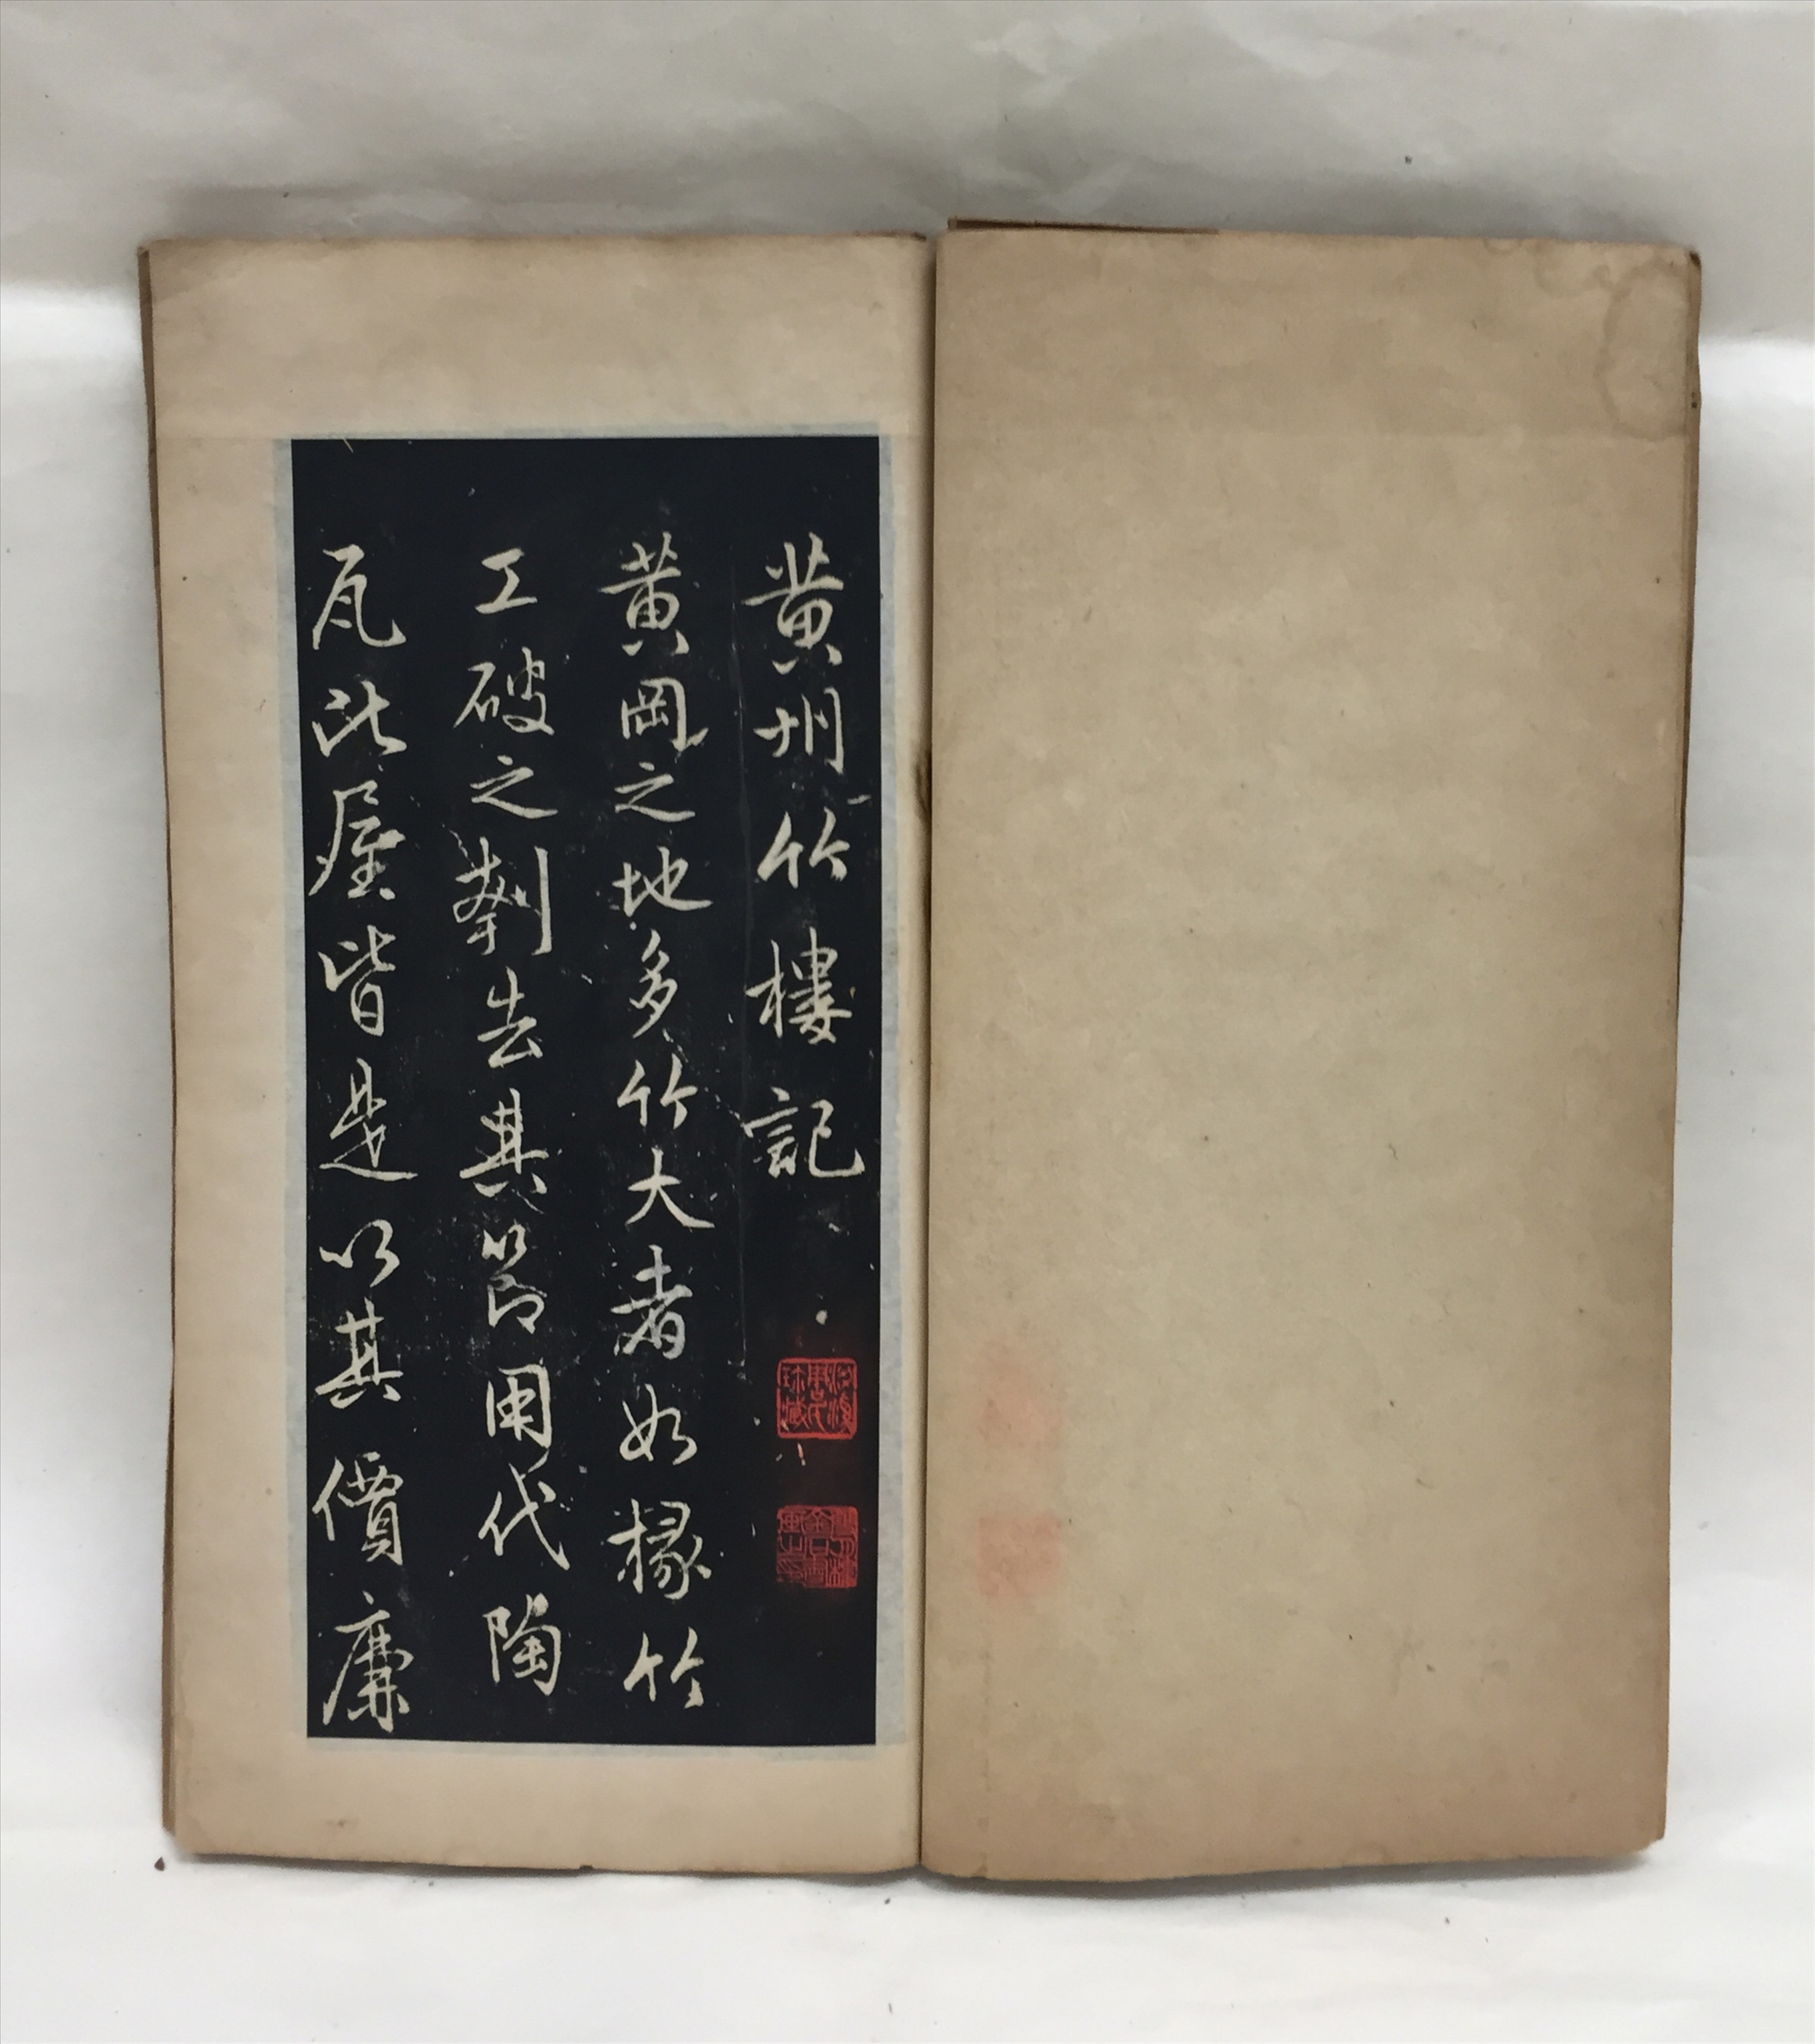 黄州竹樓記
黄岡之地多竹大者如椽竹
工破之刳去其節用代陶
瓦比屋皆是以其價廉